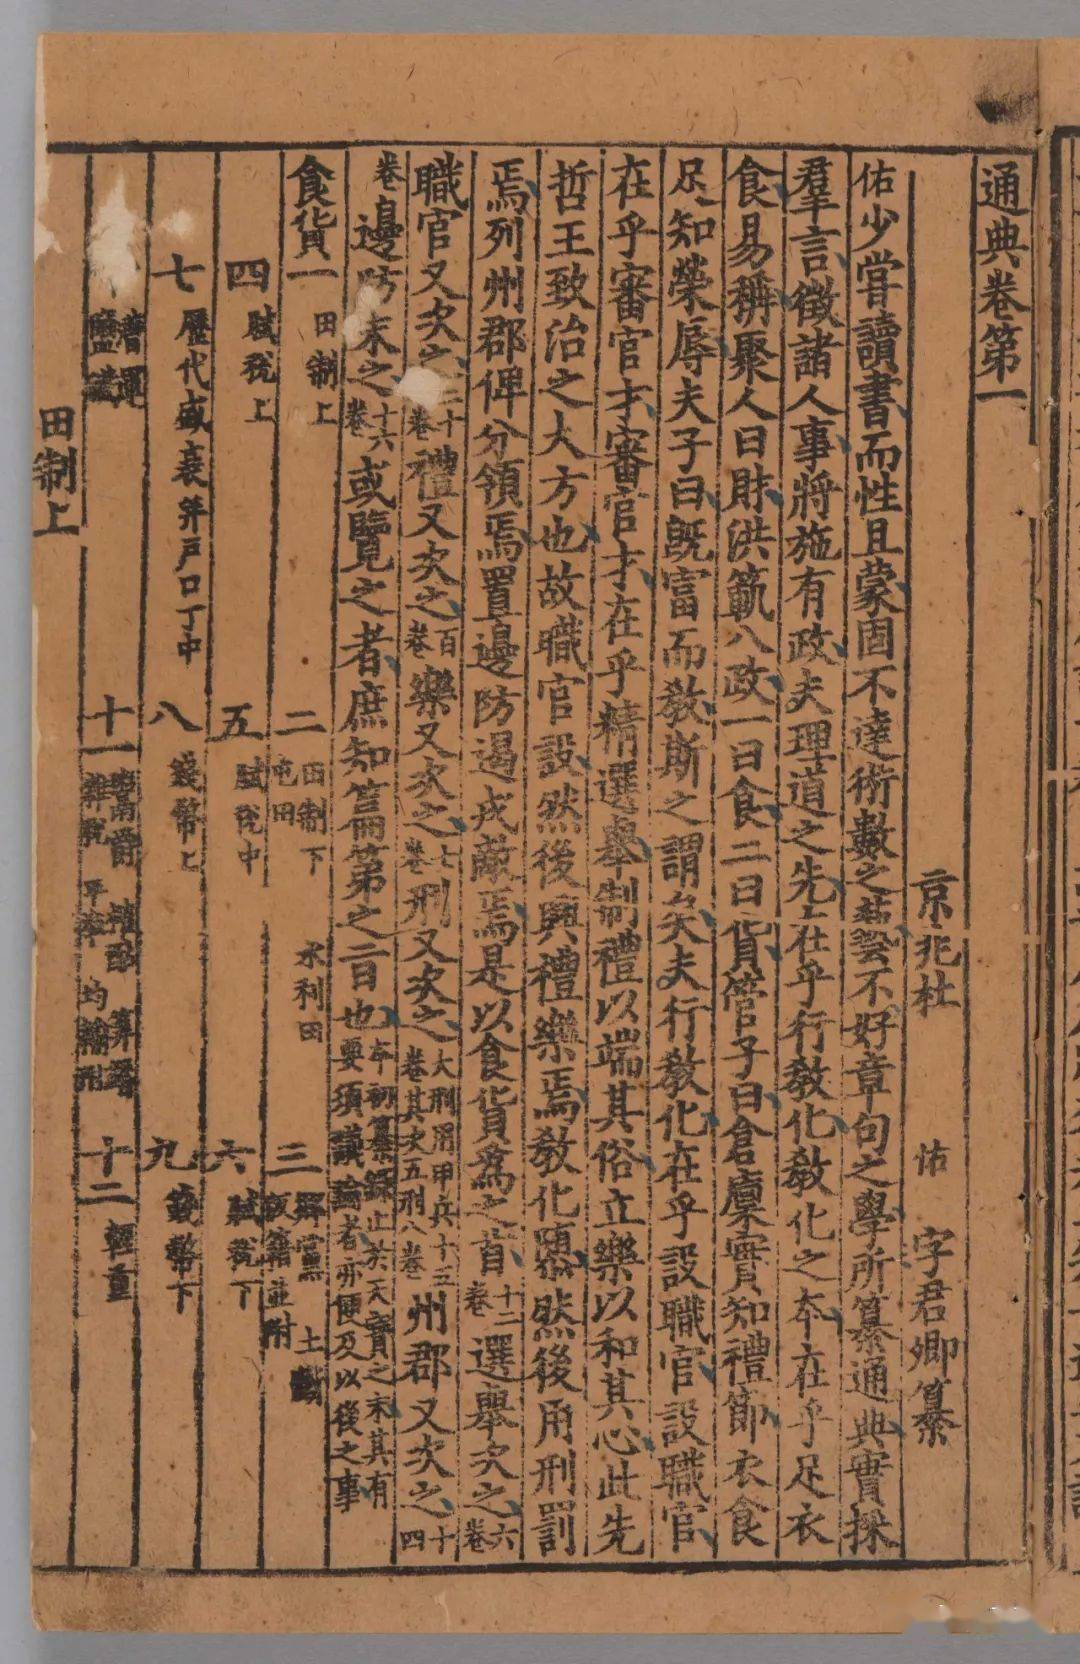 通典卷第一
京兆杜 佑 字君卿纂
佑少嘗讀書而性且蒙固不達術數之藝不好章句之學所纂通典實採
羣言徵諸人事將施有政夫理道之先在乎行教化教化之本在乎足衣
食易稱聚人曰財洪範八政一曰食二曰貨管子曰倉廩實知禮節衣食
足知榮辱夫子曰既富而教斯之謂矣夫行教化在乎設職官設職官
在乎審官才審官才在乎精選舉制禮以端其俗立樂以和其心此先
哲王致治之大方也故職官設然後興禮樂焉教化隳然後用刑罰
焉列州郡俾分領焉置邊防遏戎敵焉是以食貨爲之首十二卷選舉次之六卷
職官又次之二十卷禮又次之百卷樂又次之七卷刑又次之大刑用甲兵十五卷其次五刑八卷州郡又次之十四
卷邊防末之十六卷或覽之者庶知篇第之旨也本初纂錄止於天寶之末其有要須議論者亦便及以後之事
食貨一田制上 二田制下 屯田 水利田 三鄉黨 土斷 版籍並附
四賦稅上 五賦稅中 六賦稅下
七歷代盛衰并戶口丁中 八錢幣上 九錢幣下
漕運 鹽鐵 十一鬻爵 榷酤 算緡 雜稅 平準 均輸附 十二輕重
田制上